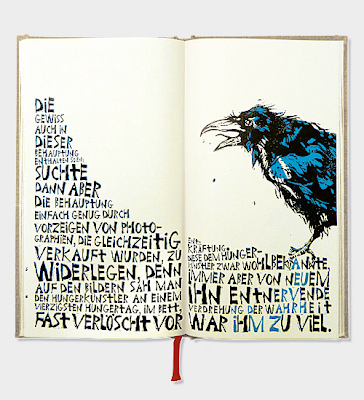 DIE
GEWISS
AUCH IN
DIESER
BEHAUPTUNG
ENTHALTEN SEI;
SUCHTE
DANN ABER
DIE BEHAUPTUNG
EINFACH GENUG DURCH
VORZEIGEN VON PHOTO-
GRAPHIEN, DIE GLEICHZEITIG
VERKAUFT WURDEN, ZU
WIDERLEGEN, DENN
AUF DEN BILDERN SAH MAN
DEN HUNGERKÜNSTLER AN EINEM
VIERZIGSTEN HUNGERTAG, IM BETT,
FAST VERLÖSCHT VOR
ENT-
KRÄFTUNG.
DIESE DEM HUNGER-
KÜNSTLER ZWAR WOHLBEKANNTE,
IMMER ABER VON NEUEM
IHN ENTNERVENDE
VERDREHUNG DER WAHRHEIT
WAR IHM ZU VIEL.